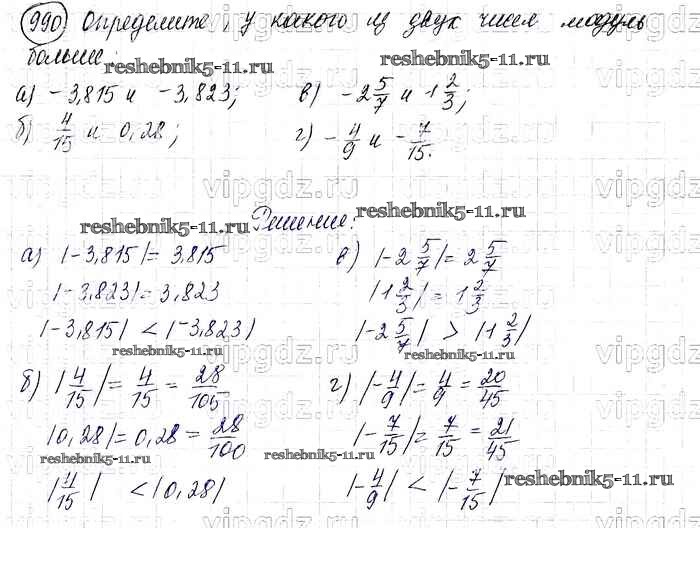 990 Определите, у какого из двух чисел модуль
больше:
reshebnik5-11.ru
а) -3,815 и -3,823; в) -2 5/7 и 1 2/3;
б) 4/15 и 0,28; г) -4/9 и -7/15.
vipgdz.ru
reshebnik5-11.ru Решение: reshebnik5-11.ru
а) |-3,815|= 3,815 в) |-2 5/7|= 2 5/7
|-3,823|= 3,823 |1 2/3|= 1 2/3
|-3,815| < |-3,823| |-2 5/7| > |1 2/3|
reshebnik5-11.ru reshebnik5-11.ru
vipgdz.ru vipgdz.ru
б) |4/15|= 4/15 = 28/105 г) |-4/9|= 4/9 = 20/45
|0,28|= 0,28 = 28/100 |-7/15|= 7/15 = 21/45
reshebnik5-11.ru reshebnik5-11.ru
|4/15| < |0,28| |-4/9| < |-7/15| reshebnik5-11.ru
vipgdz.ru vipgdz.ru